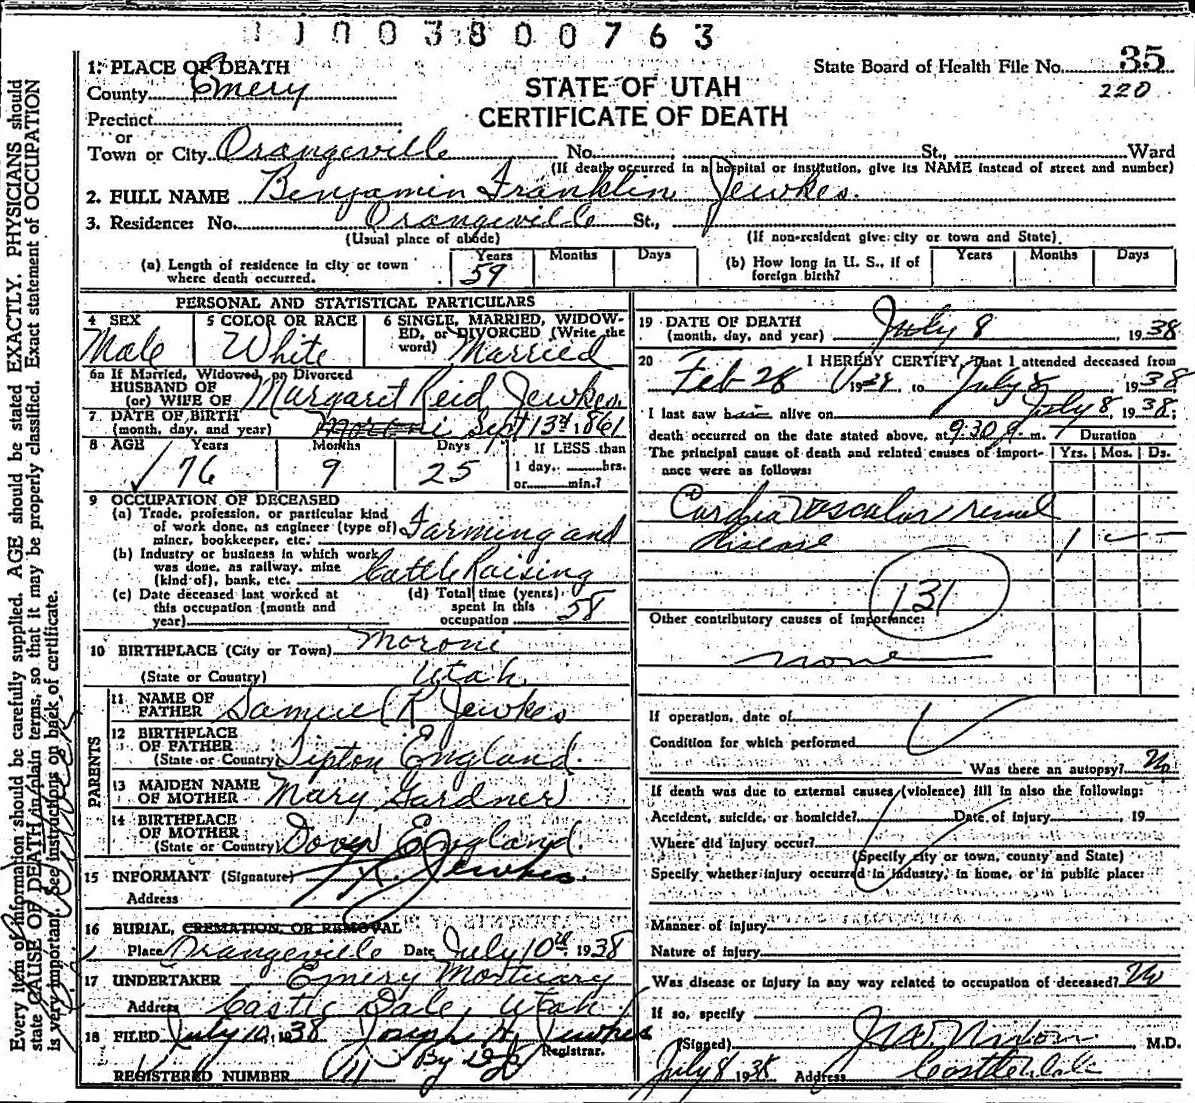 1 1 0 0 3 8 0 0 7 6 3
State Board of Health File No. 35
220
STATE OF UTAH
CERTIFICATE OF DEATH
1. PLACE OF DEATH
County Emery
Precinct
or
Town or City Orangeville No. St., Ward
(If death occurred in a hospital or institution, give its NAME instead of street and number)
2. FULL NAME Benjamin Franklin Jewkes.
3. Residence: No. Orangeville St.,
(Usual place of abode) (If non-resident give city or town and State)
(a) Length of residence in city or town where death occurred. Years 59 Months Days
(b) How long in U. S., if of foreign birth? Years Months Days
PERSONAL AND STATISTICAL PARTICULARS
4 SEX Male
5 COLOR OR RACE White
6 SINGLE, MARRIED, WIDOWED, or DIVORCED (Write the word) Married
6a If Married, Widowed, or Divorced
HUSBAND OF
(or) WIFE OF Margaret Reid Jewkes.
7 DATE OF BIRTH
(month, day, and year) Moroni Sept 13th 1861
8 AGE Years 76 Months 9 Days 25
If LESS than
1 day, hrs.
or min.?
9 OCCUPATION OF DECEASED
(a) Trade, profession, or particular kind
of work done, as engineer (type of)
miner, bookkeeper, etc. Farming and
(b) Industry or business in which work
was done, as railway, mine
(kind of), bank, etc. Cattle Raising
(c) Date deceased last worked at
this occupation (month and
year)
(d) Total time (years)
spent in this
occupation 58
10 BIRTHPLACE (City or Town) Moroni
(State or Country) Utah
PARENTS
11 NAME OF
FATHER Samuel R Jewkes
12 BIRTHPLACE
OF FATHER
(State or Country) Tipton England.
13 MAIDEN NAME
OF MOTHER Mary Gardner
14 BIRTHPLACE
OF MOTHER
(State or Country) Dover England.
15 INFORMANT (Signature) Jewkes.
Address
16 BURIAL, CREMATION, OR REMOVAL
Place Orangeville Date July 10th, 1938
17 UNDERTAKER Emery Mortuary
Address Castle Dale, Utah
18 FILED July 10, 1938 Joseph H. Jewkes
Registrar.
By
REGISTERED NUMBER 11
19 DATE OF DEATH
(month, day, and year) July 8 1938
20 I HEREBY CERTIFY, That I attended deceased from
Feb 28 1929 to July 8, 1938
I last saw him alive on July 8, 1938;
death occurred on the date stated above, at 9:30 m.
Duration
The principal cause of death and related causes of importance were as follows: Yrs. Mos. Ds.
Cardio vascular renal
disease 1
131
Other contributory causes of importance:
none
If operation, date of
Condition for which performed
Was there an autopsy? No
If death was due to external causes (violence) fill in also the following:
Accident, suicide, or homicide? Date of injury 19
Where did injury occur?
(Specify city or town, county and State)
Specify whether injury occurred in industry, in home, or in public place:
Manner of injury
Nature of injury
Was disease or injury in any way related to occupation of deceased? No
If so, specify
(Signed) J.W. Nixon, M.D.
July 8 1938 Address Castle Dale
Every item of information should be carefully supplied. AGE should be stated EXACTLY. PHYSICIANS should
state CAUSE OF DEATH in plain terms, so that it may be properly classified. Exact statement of OCCUPATION
is very important. See instructions on back of certificate.